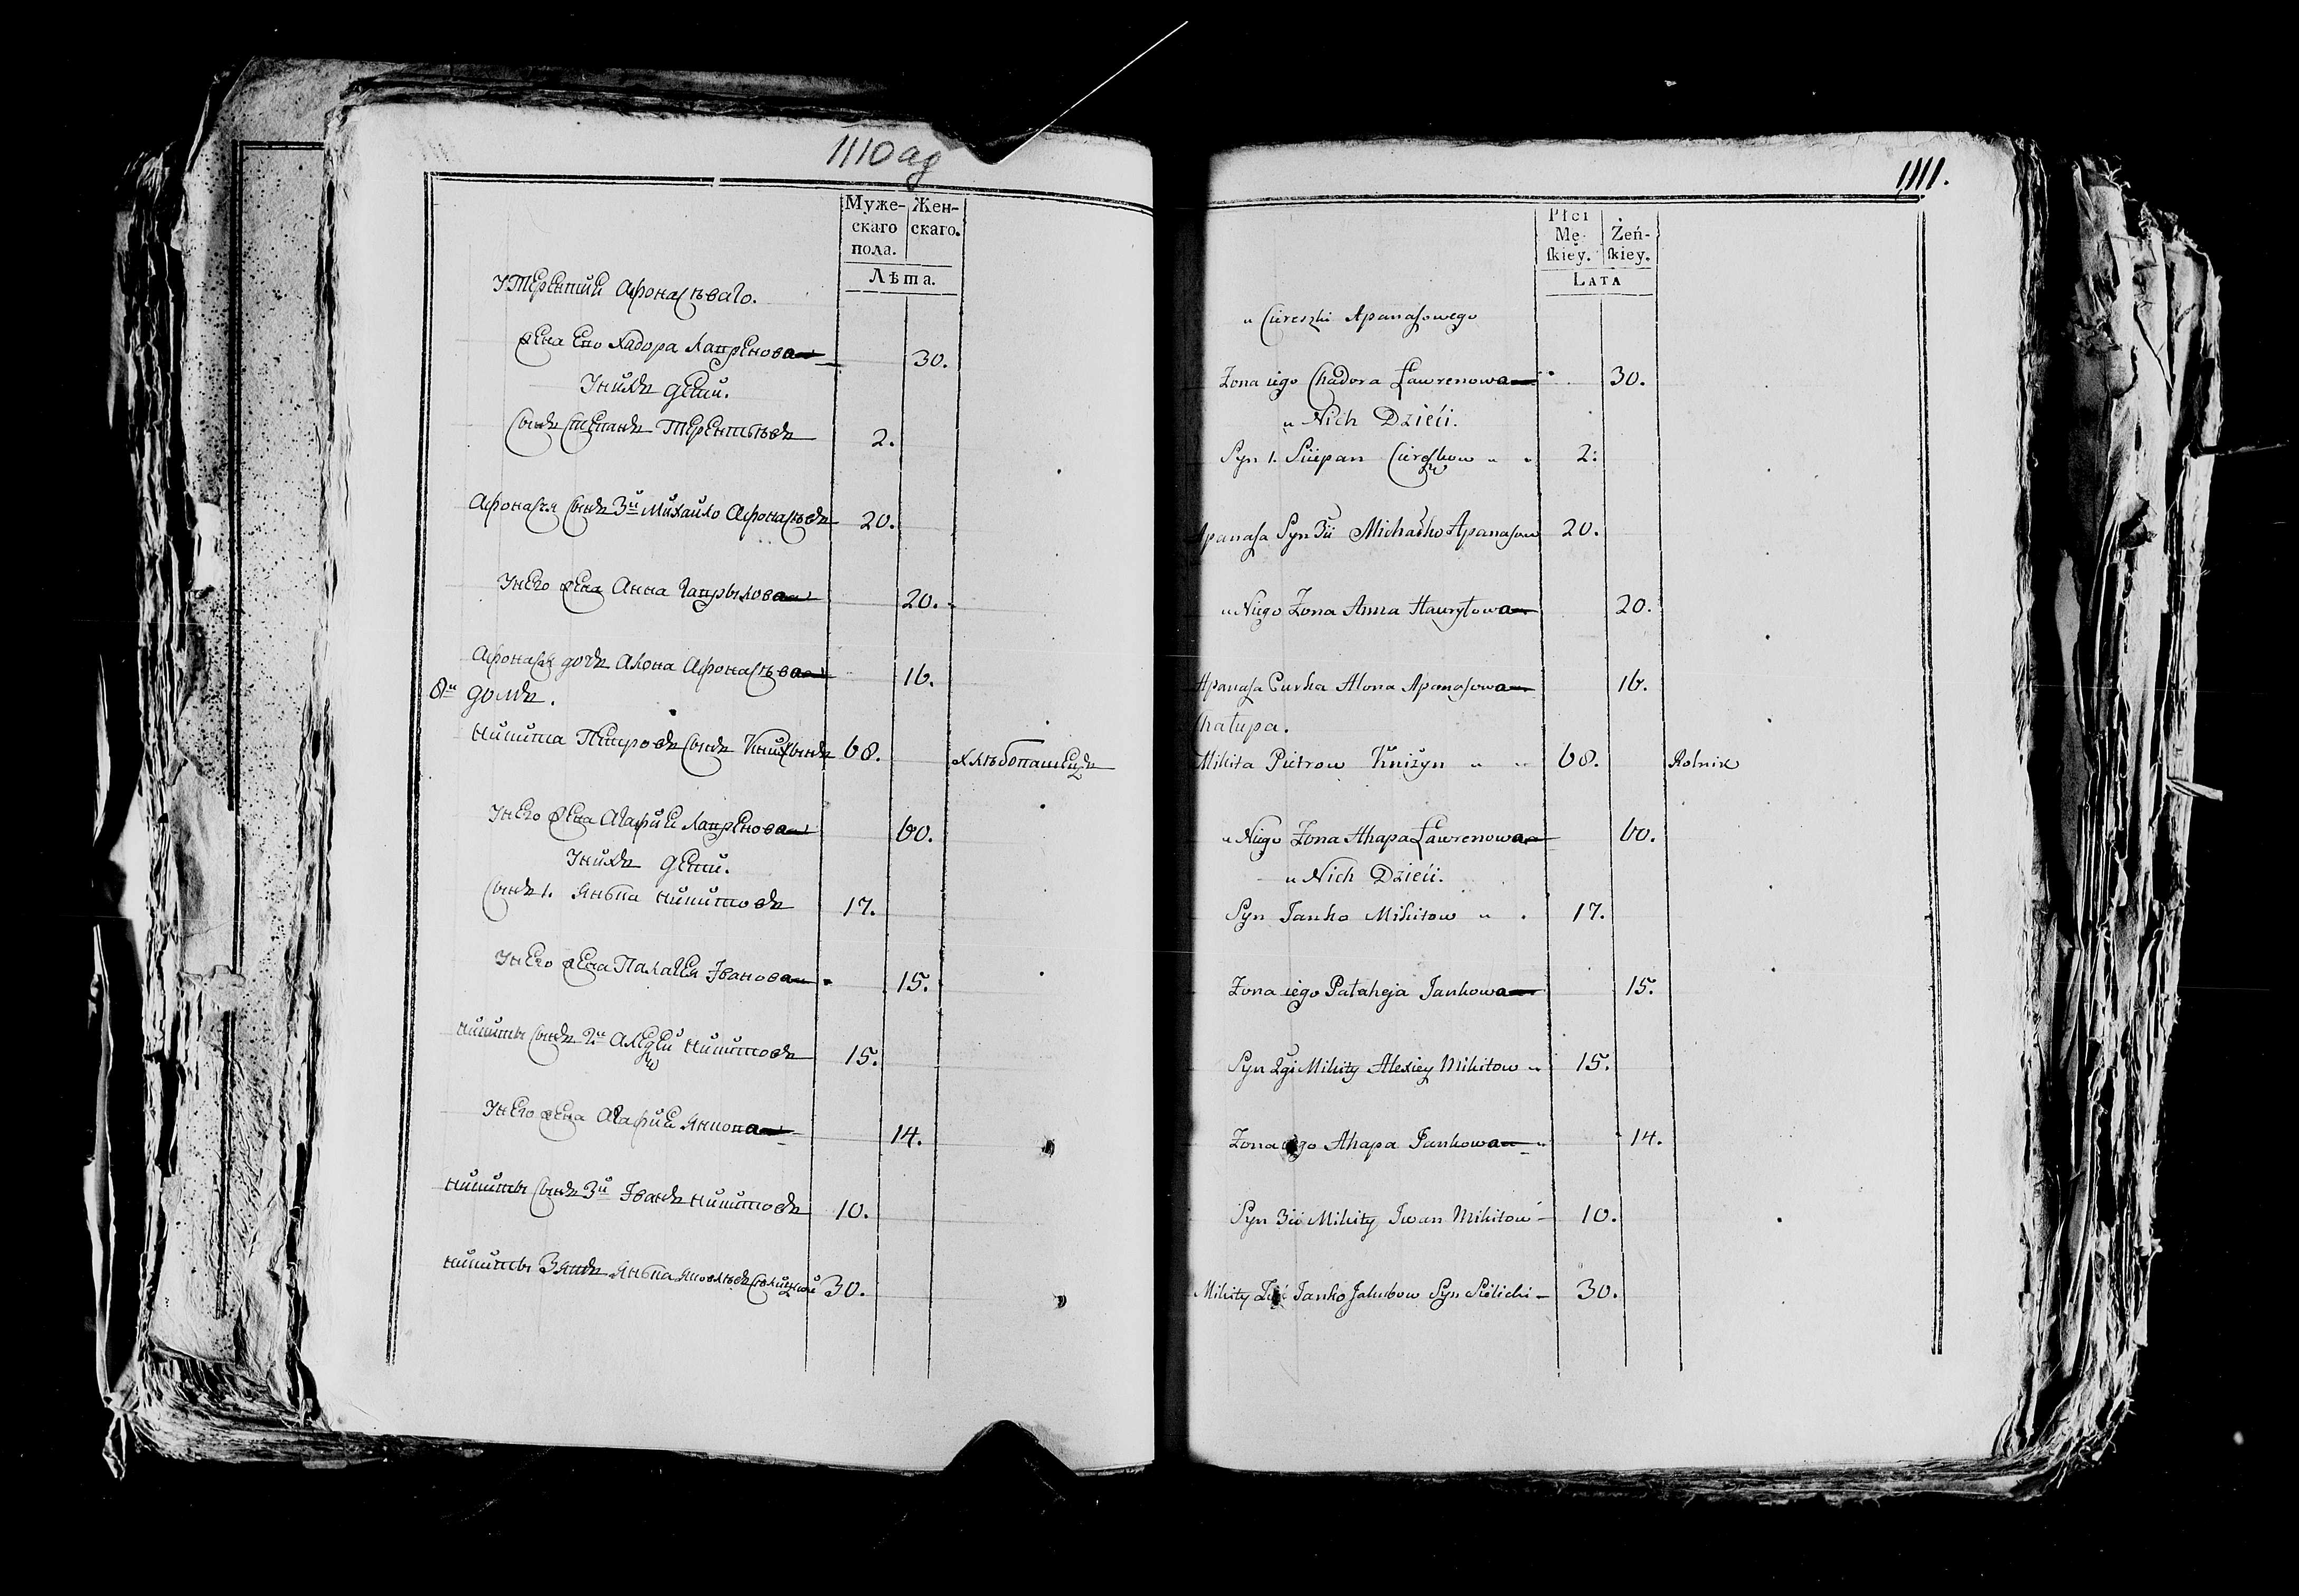 1110 ад
Муже-
скаго
пола.
Жен-
скаго.
Лѣта.
У Терентии Афонасьваго.
жена Его Хадора Лавренова 30.
У нихъ дети.
Сынъ Степанъ Терентьевъ 2.
Афонасея Сынъ 3й Михайло Афонасьевъ 20.
У него жена Анна Гаврылова 20.
Афонася дочь Алона Афонасьва 16.
8й домъ.
Никита Петровъ Сынъ 68. Хлѣбопашецъ
У него жена Агафии Лавренова 60.
У нихъ дети.
Сынъ 1. Янька Никитовъ 17.
У него жена Палагея Иванова 15.
Никиты Сынъ 2й Алексей Никитовъ 15.
У него жена Агафии 14.
Никиты Сынъ 3й Иванъ Никитовъ 10.
Никиты Зять Янька 30.
1111.
Płci
Mę-
skiey.
Żeń-
skiey.
LATA
u Ciereszki Apanasowego
Żona iego Chadora Ławrenowa 30.
u Nich Dzieći.
Syn 1. Sciepan Cireszkow 2.
Apanasa Syn 3ci Michałko Apanasow 20.
u Niego Żona Anna Hawryłowa 20.
Apanasa Curka Alona Apanasowa 16.
Chałupa.
Mikita Pietrow Kniżyn 68. Rolnik
u Niego Żona Ahapa Ławrenowa 60.
u Nich Dzieći.
Syn Janko Mikitow 17.
Żona iego Pałaheja Jankowa 15.
Syn 2gi Mikity Alexiey Mikitow 15.
Żona iego Ahapa Jankowa 14.
Syn 3ci Mikity Iwan Mikitow 10.
Mikity Zięć Janko Jakubow Syn Sielicki 30.